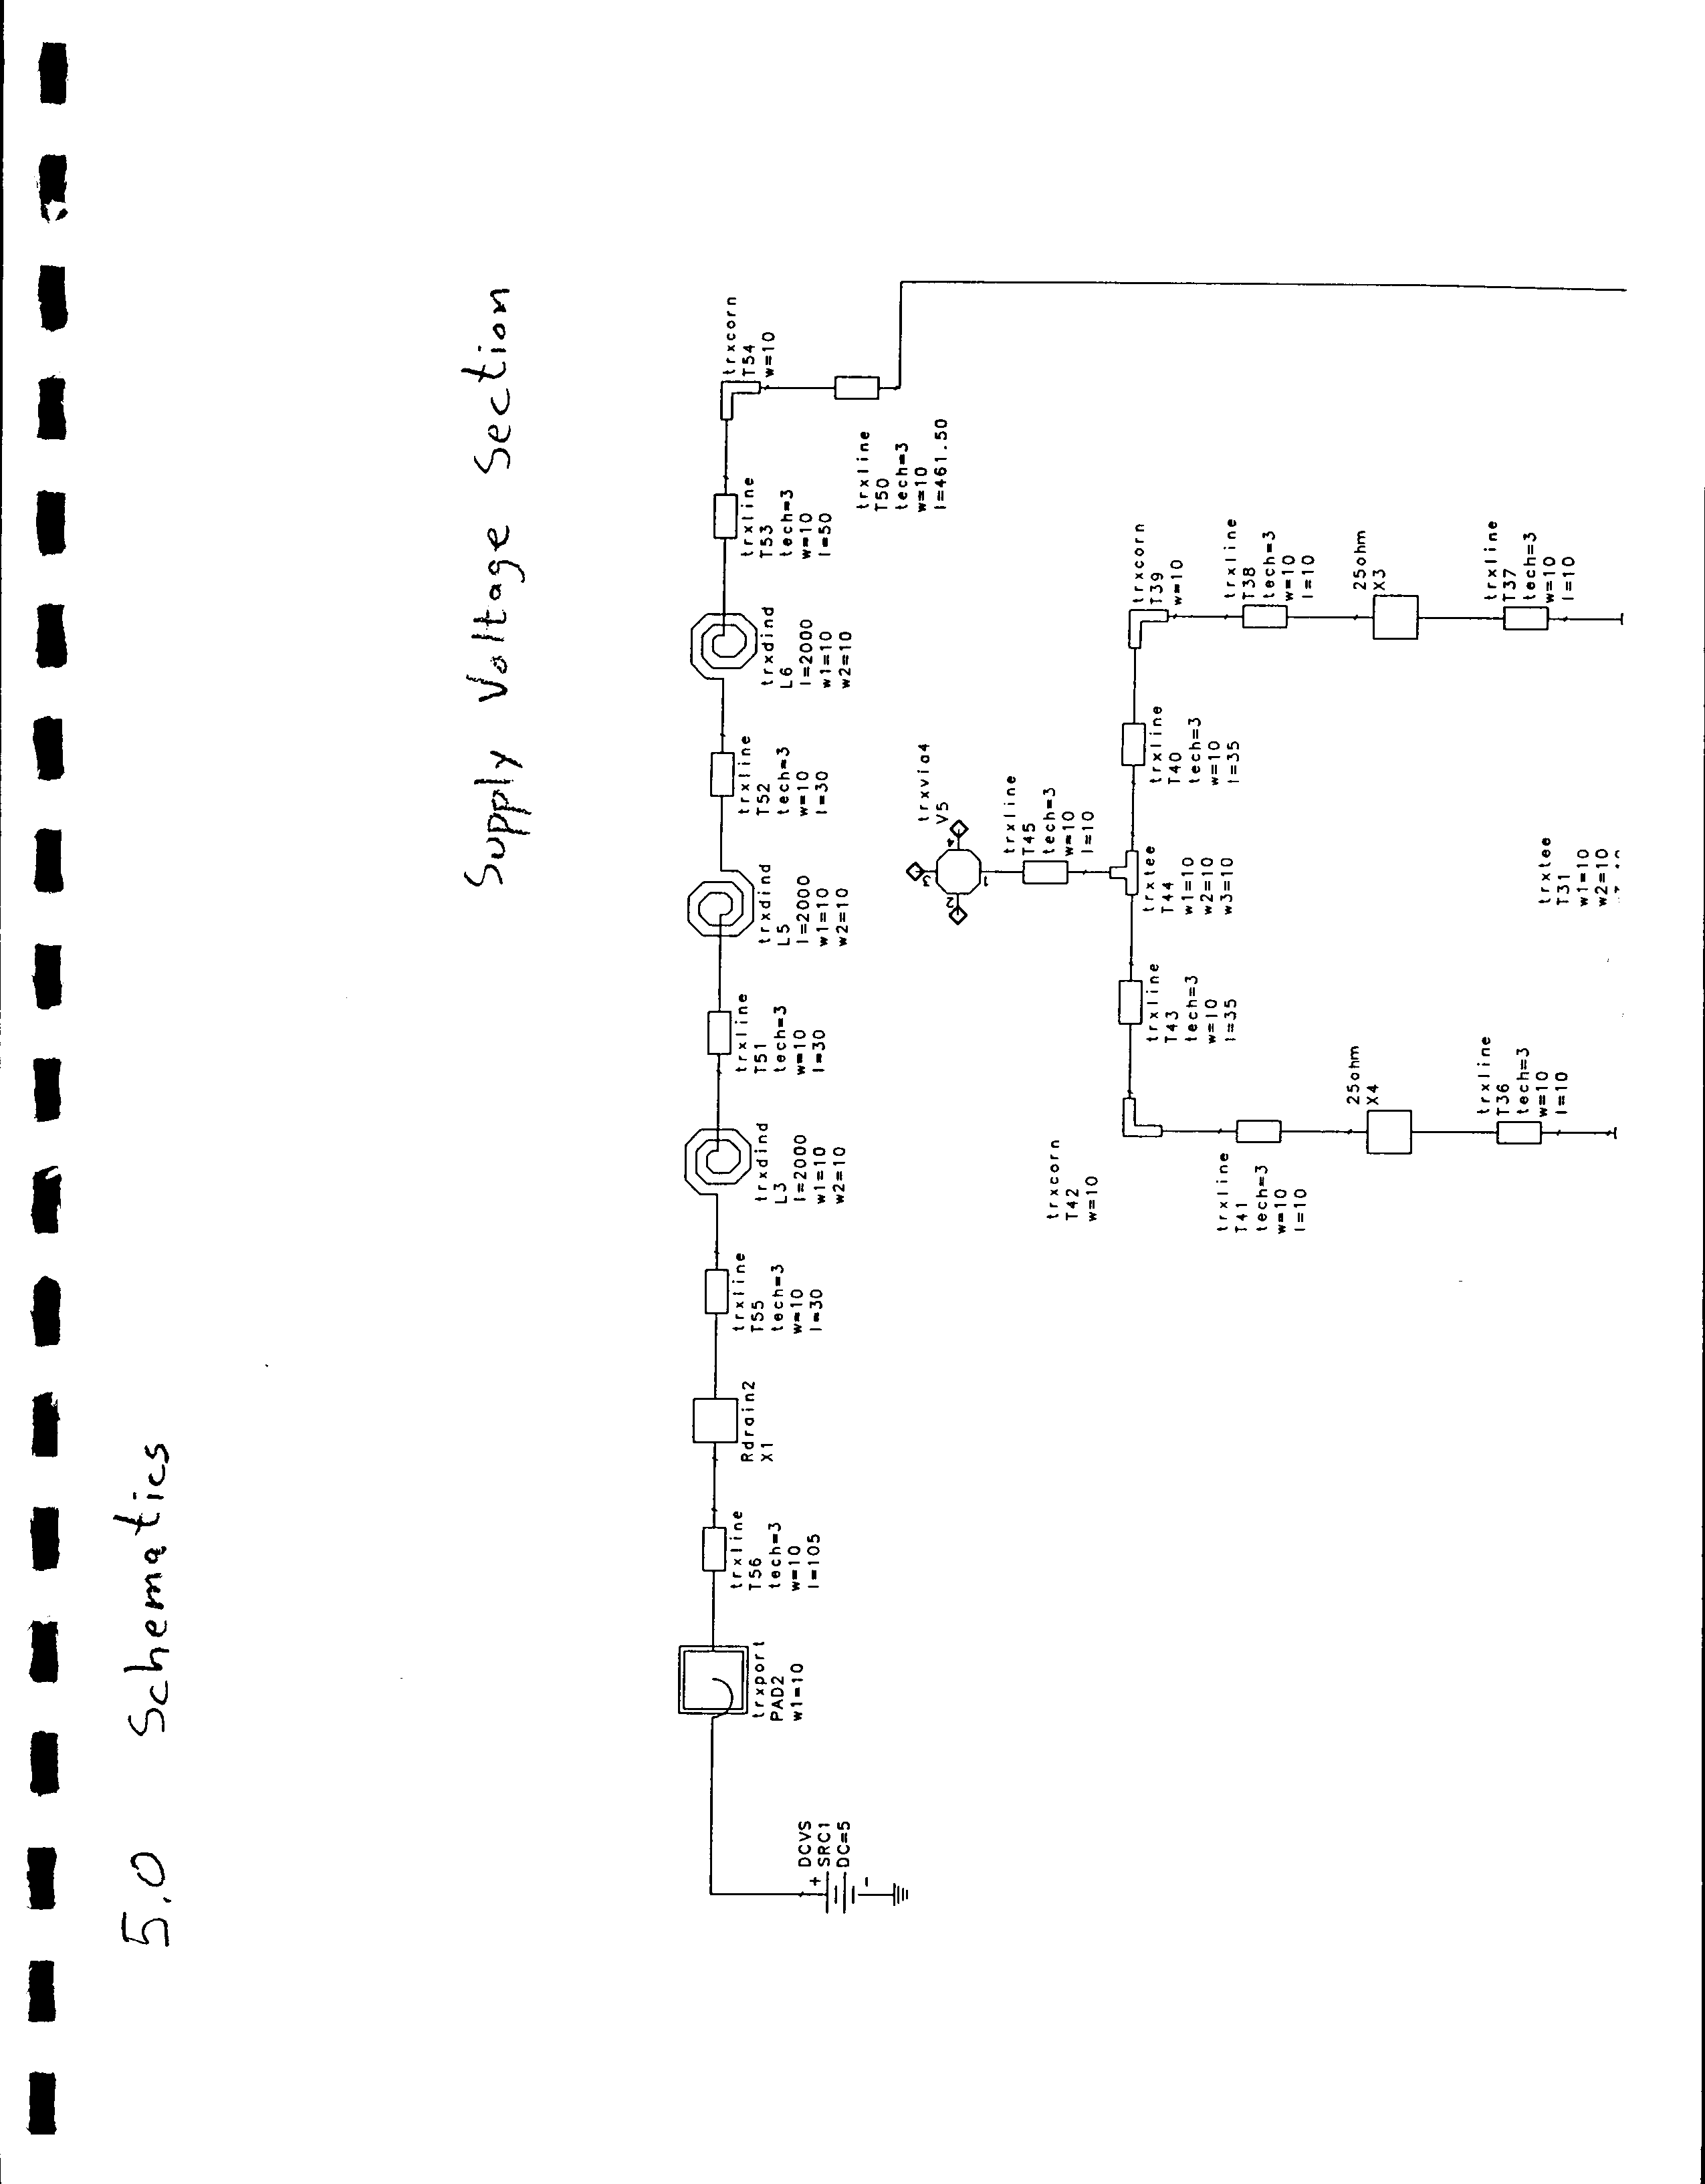 5.0 Schematics
Supply Voltage Section
DCVS
SRC1
DC=5
+
-
trxport
PAD2
w1=10
trxline
T56
tech=3
w=10
l=105
Rdrain2
X1
trxline
T55
tech=3
w=10
l=30
trxdind
L3
l=2000
w1=10
w2=10
trxline
T51
tech=3
w=10
l=30
trxdind
L5
l=2000
w1=10
w2=10
trxline
T52
tech=3
w=10
l=30
trxdind
L6
l=2000
w1=10
w2=10
trxline
T53
tech=3
w=10
l=50
trxcorn
T54
w=10
trxline
T50
tech=3
w=10
l=461.50
trxvia4
V5
1
2
3
4
trxline
T45
tech=3
w=10
l=10
trxcorn
T42
w=10
trxline
T43
tech=3
w=10
l=35
trxtee
T44
w1=10
w2=10
w3=10
trxline
T40
tech=3
w=10
l=35
trxcorn
T39
w=10
trxline
T41
tech=3
w=10
l=10
trxline
T38
tech=3
w=10
l=10
25ohm
X4
25ohm
X3
trxline
T36
tech=3
w=10
l=10
trxtee
T31
w1=10
w2=10
trxline
T37
tech=3
w=10
l=10